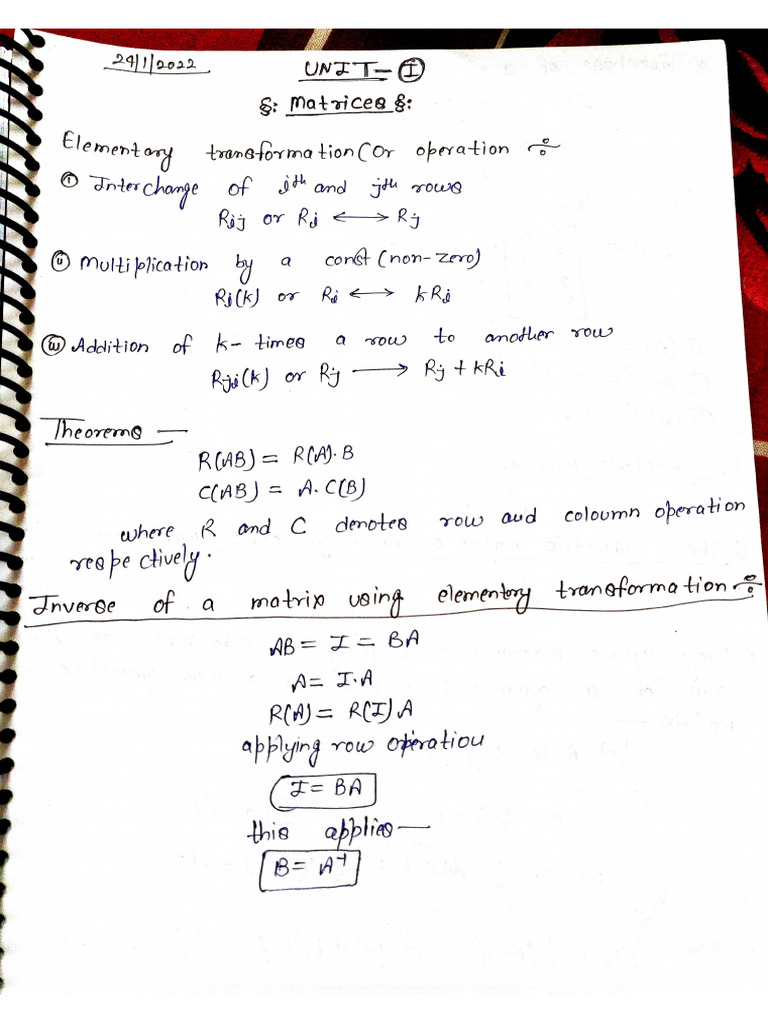 24/1/2022
UNIT-Ⓘ
§: Matrices §:
Elementary transformation (Or operation ÷
ⓘ Interchange of ith and jth rows
Rij or Ri ⟷ Rj
ⓘⓘ Multiplication by a const (non-zero)
Ri(k) or Ri ⟷ kRi
ⓘⓘⓘ Addition of k-times a row to another row
Rji(k) or Rj ⟶ Rj + kRi
Theorems —
R(AB) = R(A).B
C(AB) = A.C(B)
where R and C denotes row and coloumn operation
respectively.
Inverse of a matrix using elementory transformation ÷
AB = I = BA
A = I.A
R(A) = R(I).A
applying row operation
I = BA
this applies —
B = A⁻¹